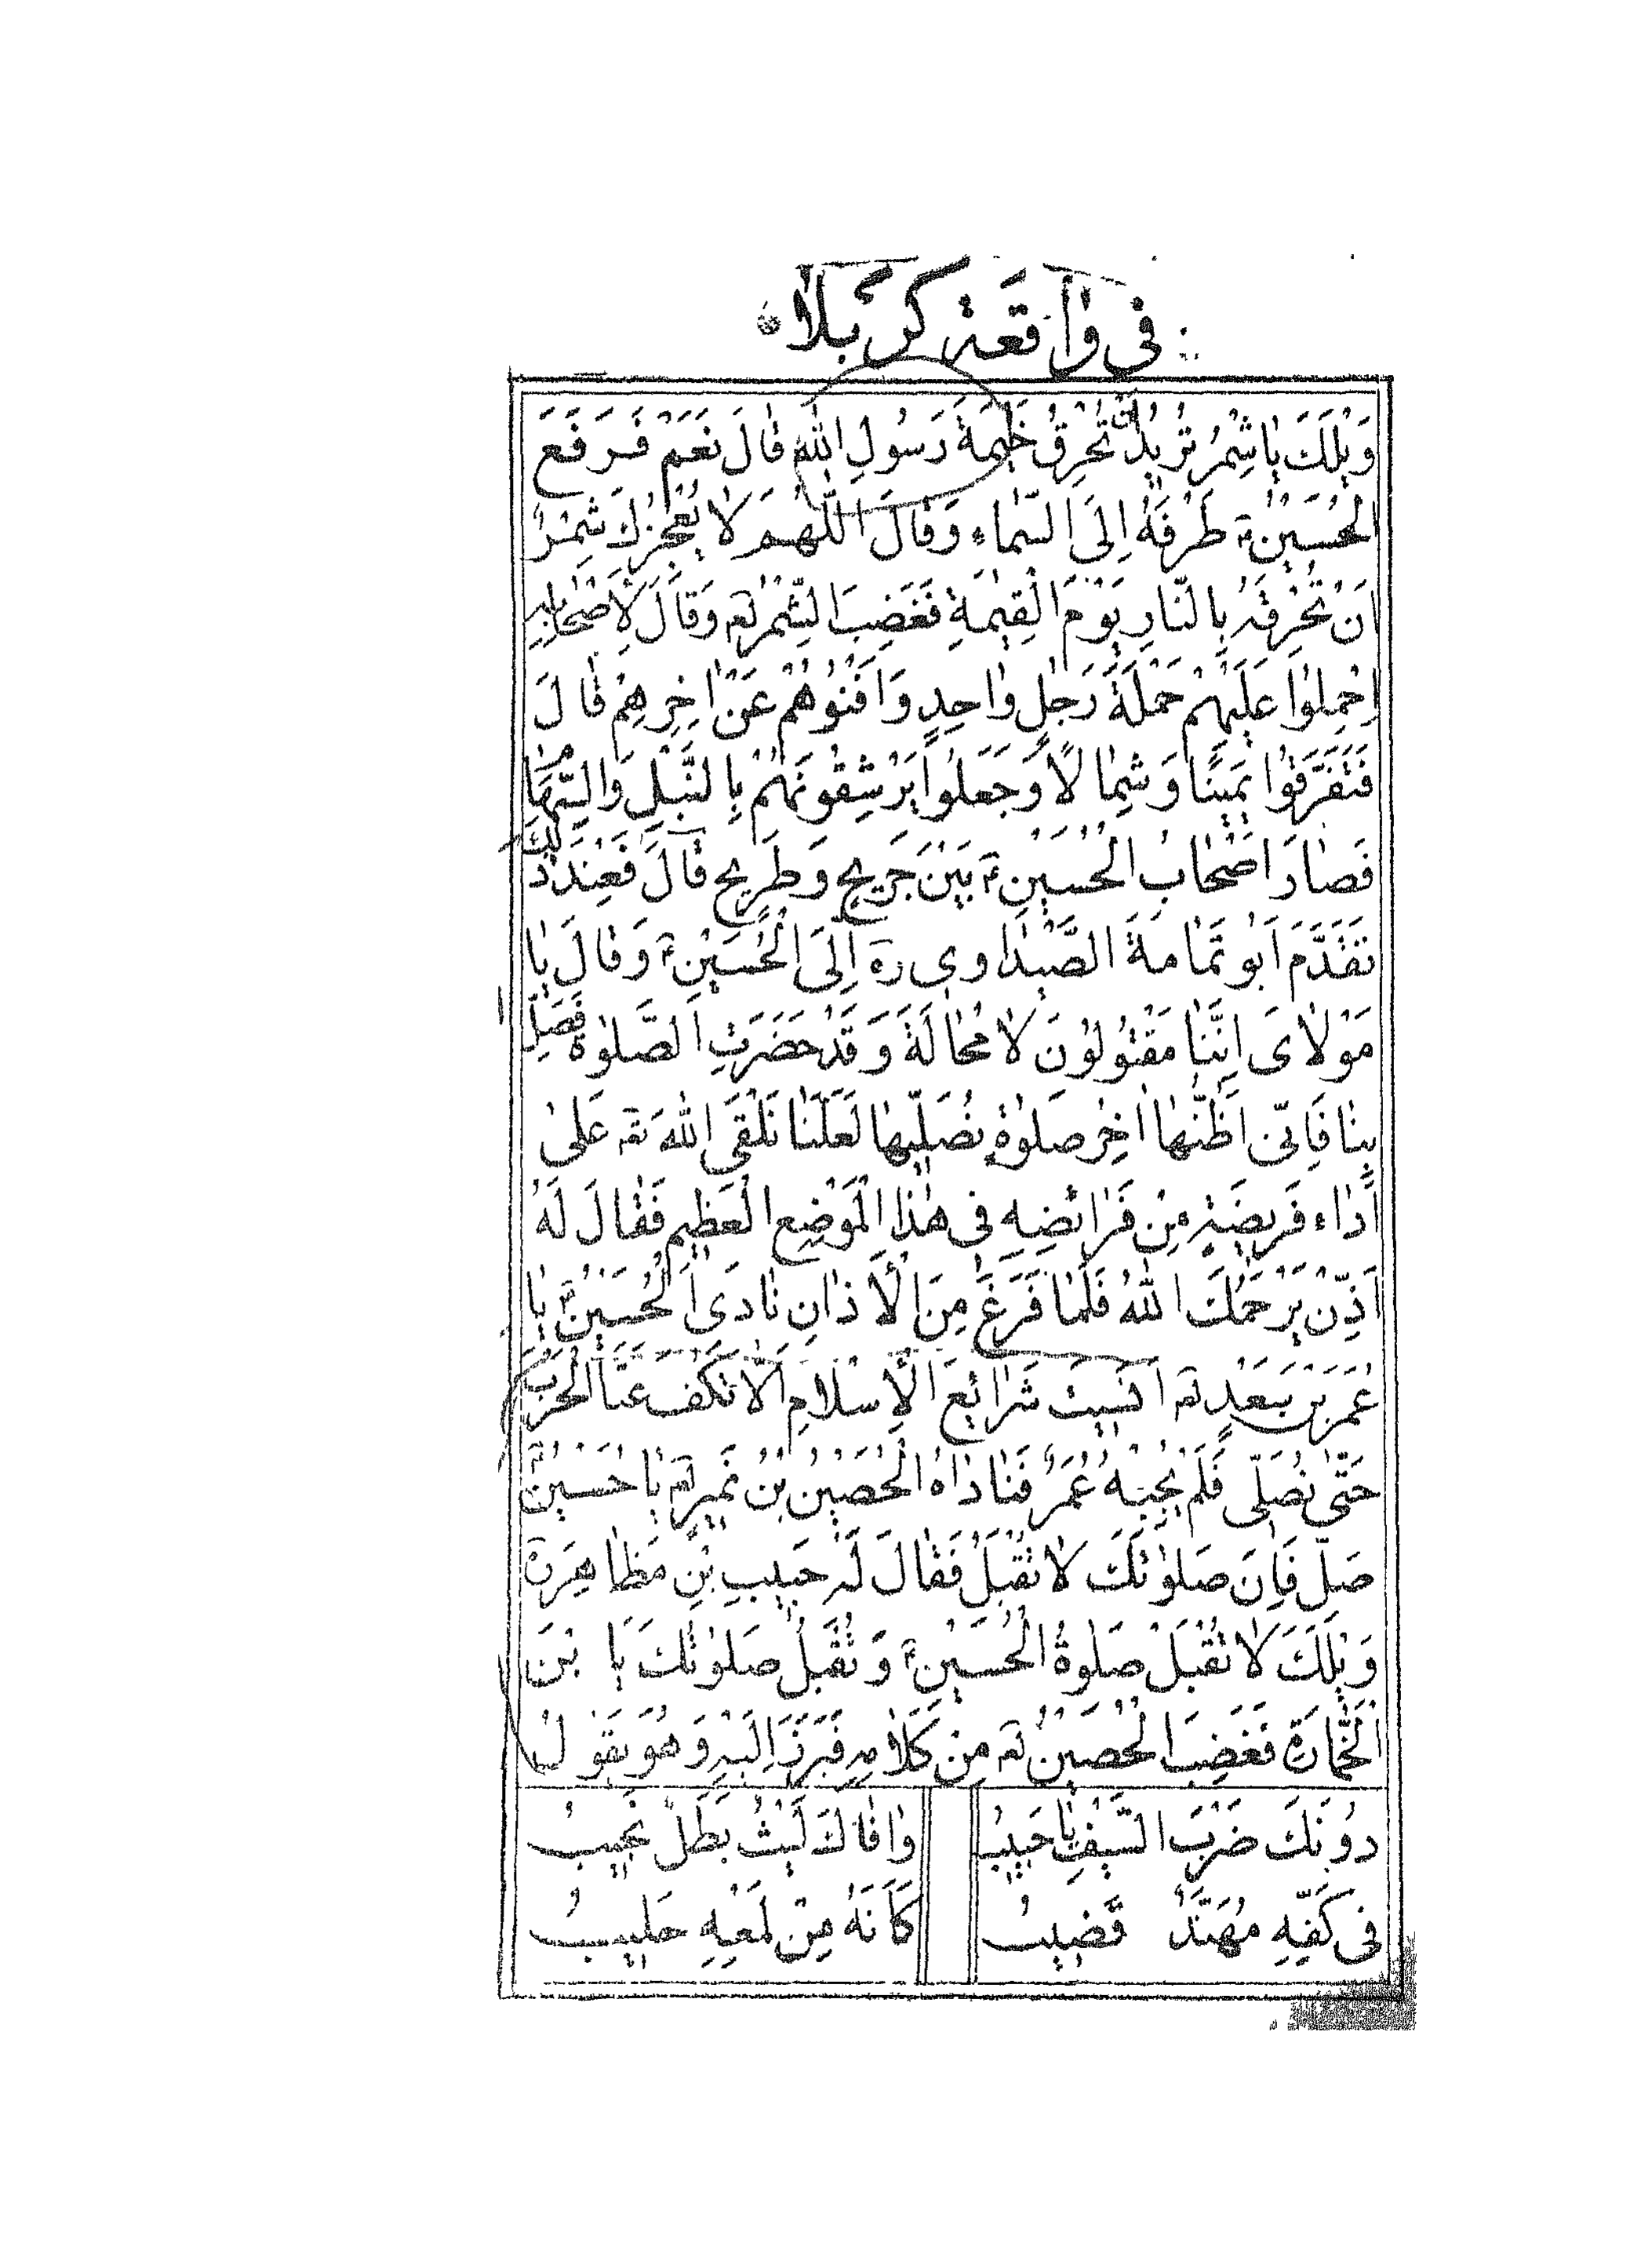 فی واقعة کربلا
وَیْلَكَ یٰا شِمْرُ تُرِیدُ اَنْ تُحْرِقَ خَیْمَةَ رَسُولِ اللّٰهِ قٰالَ نَعَمْ فَرَفَعَ
الْحُسَیْنُ ع طَرْفَهُ اِلَی السَّمٰاءِ وَقٰالَ اللّٰهُمَّ لاٰ یُعْجِزُكَ شِمْرٌ
اَنْ تُحْرِقَهُ بِالنّٰارِ یَوْمَ الْقِیٰمَةِ فَغَضِبَ الشِّمْرُ لعه وَقَالَ لِاَصْحٰابِهِ
اِحْمِلُوٰا عَلَیْهِمْ حَمْلَةَ رَجُلٍ وٰاحِدٍ وَاَفْنُوُهُمْ عَنْ اٰخِرِهِمْ قٰالَ
فَتَفَرَّقُوٰا یَمیٖنًا وَشِمٰالًا وَجَعَلُوٰا یَرْشِقُونَهُمْ بِالنَّبْلِ وَالسِّهٰامِ
فَصٰارَ اَصْحٰابُ الْحُسَیْنِ ع بَیْنَ جَرِیحٍ وَطَرِیحٍ قٰالَ فَعِنْدَ ذٰلِكَ
تَقَدَّمَ اَبُو ثَمٰامَةَ الصَّیْدٰاوی ره اِلَی الْحُسَیْنِ ع وَقٰالَ یٰا
مَوْلاٰیَ اِنَّنٰا مَقْتُولُوُنَ لاٰ مُحٰالَةَ وَقَدْ حَضَرَتِ الصَّلوٰةُ فَصَلِّ
بِنٰا فَاِنّی اَظُنُّهٰا اٰخِرَ صَلوٰةٍ نُصَلّیٖهٰا لَعَلَّنٰا نَلْقَی اللّٰهَ تعه عَلیٰ
اَدٰاءِ فَریٖضَةٍ مِنْ فَرٰائِضِهِ فی هٰذَا الْمَوْضِعِ الْعَظیٖمِ فَقٰالَ لَهُ
اَذِّنْ یَرْحَمُكَ اللّٰهُ فَلَمّٰا فَرَغَ مِنَ الْاَذٰانِ نٰادَی الْحُسَیْنُ ع یٰا
عُمَرَ بْنَ سَعْدٍ لعه اَنَسیٖتَ شَرٰائِعَ الْاِسْلاٰمِ اَلاٰ تَكُفُّ عَنَّا الْحَرْبَ
حَتّٰی نُصَلّی فَلَمْ یُجِبْهُ عُمَرُ فَنٰادٰاهُ الْحُصَیْنُ بْنُ نُمَیْرٍ لعه یٰا حُسَیْنُ ع
صَلِّ فَاِنَّ صَلوٰتَكَ لاٰ تُقْبَلُ فَقٰالَ لَهُ حَبیٖبِ بْنِ مَظٰاهِرَ ره
وَیْلَكَ لاٰ تُقْبَلُ صَلوٰةُ الْحُسَیْنِ ع وَتُقْبَلُ صَلوٰتُكَ یَا بْنَ
الْخَمّٰارَةِ فَغَضِبَ الْحُصَیْنُ لعه مِنْ كَلاٰمِهِ فَبَرَزَ اِلَیْهِ وَهُوَ یَقُولُ
دُونَكَ ضَرْبَ السَّیْفِ یٰا حَبیٖبُ وٰافٰاكَ لَیْثٌ بَطَلٌ نَجیٖبُ
فی كَفِّهِ مُهَنَّدٌ قَضیٖبُ كَاَنَّهُ مِنْ لَمْعِهِ حَلیٖبُ